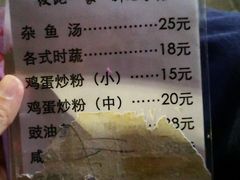 杂鱼汤……25元
各式时蔬……18元
鸡蛋炒粉（小）……15元
鸡蛋炒粉（中）……20元
豉油 28元
咸